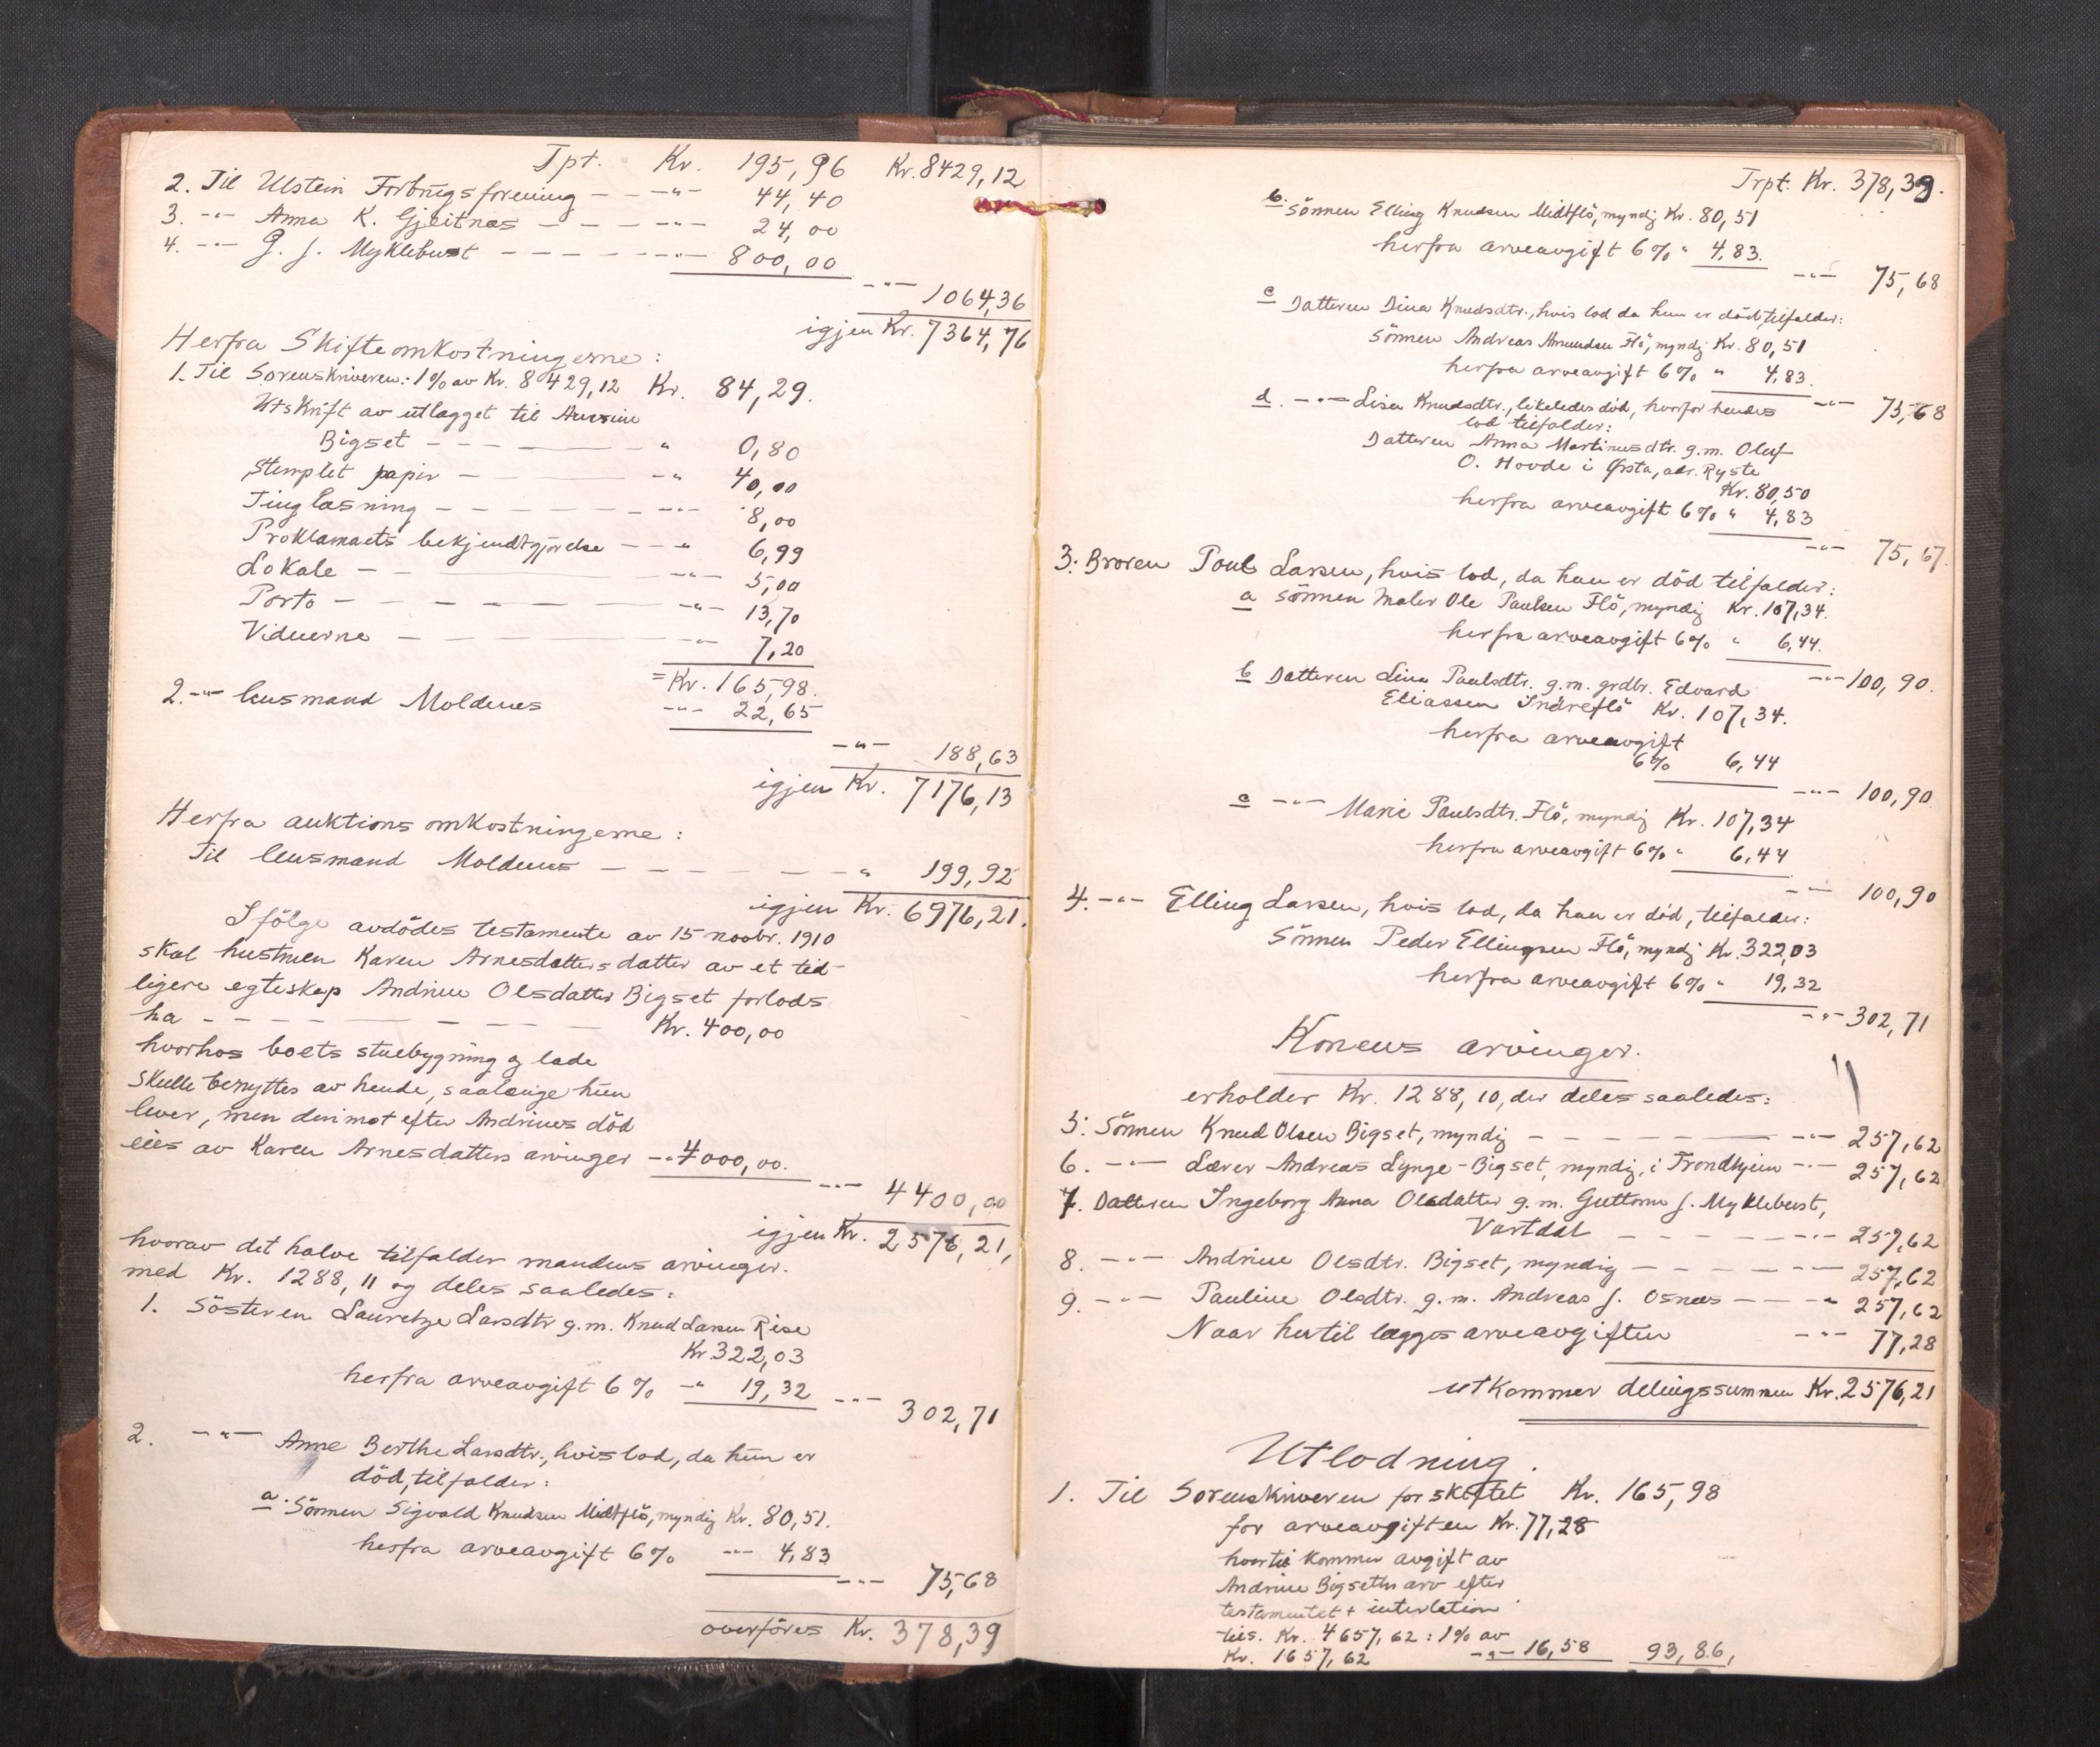 Tpt. Kr. 195,96 Kr. 8429,12
2. Til Ulstein Forbrugsforening — — -"- 44,40
3. -"- Anna K. Gjeitnæs — — — — -"- 24,00
4. -"- G. J. Myklebust — — — — — -"- 800,00
-"- 1064,36
igjen Kr. 7364,76
Herfra Skifteomkostningerne:
1. Til Sorenskriveren: 1% av Kr. 8429,12 Kr. 84,29.
Utskrift av utlægget til
Bigset — — — — " 0,80
Stemplet papir — — -" 40,00
Tinglæsning — — — — — -"- 8,00
Proklamaets bekjendtgjørelse — — " 6,99
Lokale — — — -"- 5,00
Porto — — — — — -"- 13,70
Viduerne — — — -"- 7,20
= Kr. 165,98.
2. -"- lensmand Moldenes -"- 22,65
-"- 188,63
igjen Kr. 7176,13
Herfra auktionsomkostningerne:
Til lensmand Moldenes — — — — — " 199,92
igjen Kr. 6976,21.
Ifölge avdödes testamente av 15 novbr. 1910
skal hustruen Karen Arnesdatters datter av et tid-
ligere egteskap Andrine Olsdatter Bigset forlods
ha — — — — — — — Kr. 400,00
hvorhos boets stuebygning og lade
skulle benyttes av hende, saalænge hun
lever, men derimot efter Andrines död
eies av Karen Arnesdatters arvinger -"- 4000,00.
-"- 4400,00
igjen Kr. 2576,21,
hvorav det halve tilfalder mandens arvinger.
med Kr. 1288,11 og deles saaledes:
1. Sösteren Lauretze Larsdtr g.m. Knud Larsen Rise
Kr 322,03
herfra arveavgift 6% -" 19,32 -"- 302,71
2. -"- Anne Berthe Larsdtr., hvis lod, da hun er
död, tilfalder:
a. Sönnen Sigvald Knudsen Midtflö, myndig Kr. 80,51.
herfra arveavgift 6% -"- 4,83
-"- 75,68
overföres Kr. 378,39
Trpt. Kr. 378,39.
b. Sönnen Elling Knudsen Midtflö, myndig Kr. 80,51
herfra arveavgift 6% " 4,83.
-"- 75,68
c Datteren Dina Knudsdtr., hvis lod da hun er död, tilfalder:
Sönnen Andreas Amundsen Flö, myndig Kr. 80,51
herfra arveavgift 6% " 4,83.
-"- 75,68
d. -"- Lisa Knudsdtr., likeledes död, hvorfor hendes
lod tilfalder:
Datteren Anna Martinusdtr. g.m. Oluf
O. Hovde i Ørsta, adr. Ryste
Kr. 80,50
herfra arveavgift 6% " 4,83
-"- 75,67.
3. Broren Poul Larsen, hvis lod, da han er död tilfalder:
a Sönnen maler Ole Paulsen Flö, myndig Kr. 107,34.
herfra arveavgift 6% " 6,44.
-"- 100,90.
b Datteren Lina Paulsdtr. g.m. grdbr. Edvard
Eliassen Indreflö Kr. 107,34.
herfra arveavgift
6% 6,44
-"- 100,90
c -"- Marie Paulsdtr. Flö, myndig Kr. 107,34
herfra arveavgift 6% " 6,44
-"- 100,90
4. -"- Elling Larsen, hvis lod, da han er död, tilfalder:
Sönnen Peder Ellingsen Flö, myndig Kr. 322,03
herfra arveavgift 6% " 19,32
-"- 302,71
Konens arvinger.
erholder Kr. 1288,10, der deles saaledes:
5. Sönnen Knud Olsen Bigset, myndig — — — — -"- 257,62
6. -"- Lærer Andreas Lynge-Bigset, myndig, i Trondhjem -"- 257,62
7. Datteren Ingeborg Anna Olsdatter g.m. Guttorm J. Myklebust,
Vartdal — — — — -"- 257,62
8. -"- Andrine Olsdtr. Bigset, myndig — — — -"- 257,62
9. -"- Pauline Olsdtr. g.m. Andreas J. Osnæs — — " 257,62
Naar hertil lægges arveavgiften -"- 77,28
utkommer delingssummen Kr. 2576,21
Utlodning.
1. Til Sorenskriveren for skiftet Kr. 165,98
for arveavgiften Kr. 77,28
hvortil kommer avgift av
Andrine Bigseths arv efter
testamentet +
Kr. 4657,62 : 1% av
Kr. 1657,62 -"- 16,58 93,86,